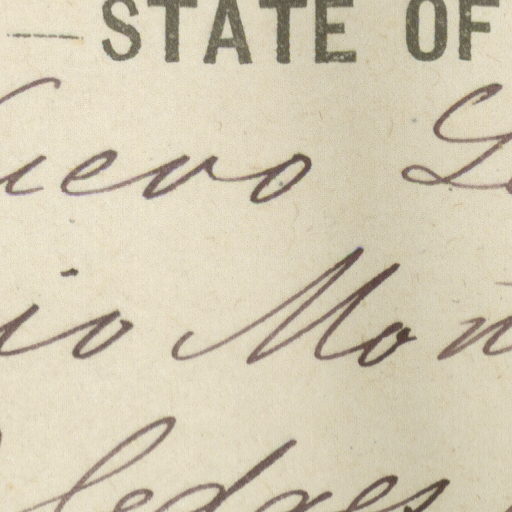 STATE OF
uevo L
io Mon
ledges